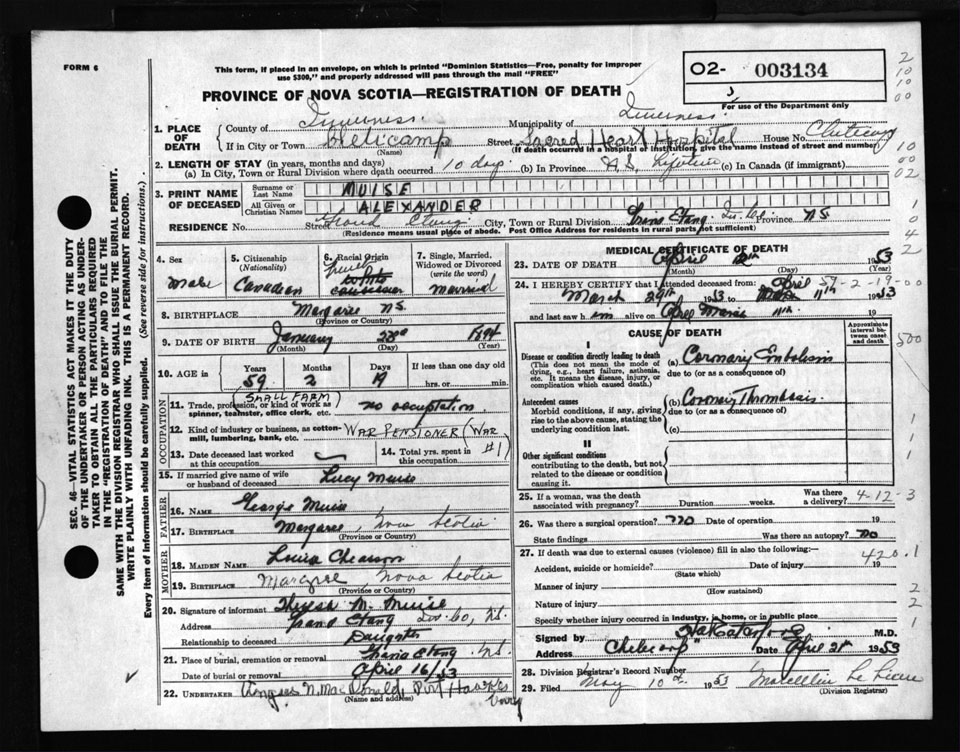 FORM 6
This form, if placed in an envelope, on which is printed "Dominion Statistics—Free, penalty for improper
use $300," and properly addressed will pass through the mail "FREE"
O2- 003134
PROVINCE OF NOVA SCOTIA—REGISTRATION OF DEATH
For use of the Department only
1. PLACE OF DEATH
County of Inverness Municipality of Inverness
If in City or Town Cheticamp Street Sacred Heart Hospital House No. Cheticamp
(Name) (If death occurred in a hospital or institution, give the name instead of street and number)
2. LENGTH OF STAY (in years, months and days)
(a) In City, Town or Rural Division where death occurred 10 days (b) In Province N.S. Lifetime (c) In Canada (if immigrant)
3. PRINT NAME OF DECEASED
Surname or Last Name MUISE
All Given or Christian Names ALEXANDER
RESIDENCE No. Street Grand Etang City, Town or Rural Division Grand Etang Inv. Co. Province NS
(Residence means usual place of abode. Post Office Address for residents in rural parts not sufficient)
4. Sex Male
5. Citizenship (Nationality) Canadian
6. Racial Origin French
7. Single, Married, Widowed or Divorced (write the word) Married
8. BIRTHPLACE Margaree NS.
(Province or Country)
9. DATE OF BIRTH January 23rd 1894
(Month) (Day) (Year)
10. AGE in Years 59 Months 2 Days 19 If less than one day old
hrs. or min.
OCCUPATION
(SMALL FARM)
11. Trade, profession, or kind of work as spinner, teamster, office clerk, etc. no occuptation.
12. Kind of industry or business, as cotton-mill, lumbering, bank, etc. WAR PENSIONER (WAR #1)
13. Date deceased last worked at this occupation
14. Total yrs. spent in this occupation
15. If married give name of wife or husband of deceased Lucy Muise
FATHER
16. Name George Muise
17. Birthplace Margaree, Nova Scotia
(Province or Country)
MOTHER
18. MAIDEN NAME Louisa Chiasson
19. BIRTHPLACE Margaree, Nova Scotia
(Province or Country)
20. Signature of informant Theresa M. Muise
Address Grand Etang Inv. Co, NS.
Relationship to deceased Daughter
21. Place of burial, cremation or removal Grand Etang NS.
Date of burial or removal April 16/53
22. UNDERTAKER Angus N. MacDonald, Port Hawkesbury
(Name and address)
MEDICAL CERTIFICATE OF DEATH
23. DATE OF DEATH April 12th 1953
(Month) (Day) (Year)
24. I HEREBY CERTIFY that I attended deceased from: April 59-2-19-00
March 29th 1953 to 11th 1953
and last saw him alive on April 11th 19
CAUSE OF DEATH
Approximate interval between onset and death
I
Disease or condition directly leading to death (a) Coronary Embolism
(This does not mean the mode of dying, e.g., heart failure, asthenia, etc. It means the disease, injury, or complication which caused death.)
due to (or as a consequence of)
Antecedent causes (b) Coronary Thrombosis
Morbid conditions, if any, giving rise to the above cause, stating the underlying condition last.
due to (or as a consequence of)
(c)
II
Other significant conditions
contributing to the death, but not related to the disease or condition causing it.
25. If a woman, was the death associated with pregnancy? Duration weeks. Was there a delivery? 4-12-3
26. Was there a surgical operation? no Date of operation 19
State findings Was there an autopsy? no
27. If death was due to external causes (violence) fill in also the following: 420.1
Accident, suicide or homicide? Date of injury 19
(State which)
Manner of injury
(How sustained)
Nature of injury
Specify whether injury occurred in industry, in home, or in public place
Signed by M.D.
Address Cheticamp Date April 21 1953
28. Division Registrar's Record Number
29. Filed May 10th 1953 Marcellin
(Division Registrar)
SEC. 46—VITAL STATISTICS ACT MAKES IT THE DUTY
OF THE UNDERTAKER OR PERSON ACTING AS UNDER-
TAKER TO OBTAIN ALL THE PARTICULARS REQUIRED
IN THE "REGISTRATION OF DEATH" AND TO FILE THE
SAME WITH THE DIVISION REGISTRAR WHO SHALL ISSUE THE BURIAL PERMIT.
WRITE PLAINLY WITH UNFADING INK. THIS IS A PERMANENT RECORD.
Every item of information should be carefully supplied. (See reverse side for instructions.)